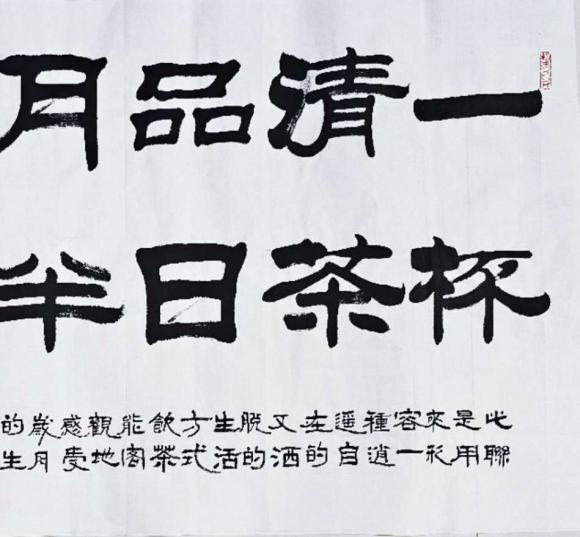 一杯
清茶
品日
月半
此聯
是用
來形
容一
種逍
遥自
在的
又洒
脱的
生活
方式
飲茶
能閣
觀地
感受
歲月
的生